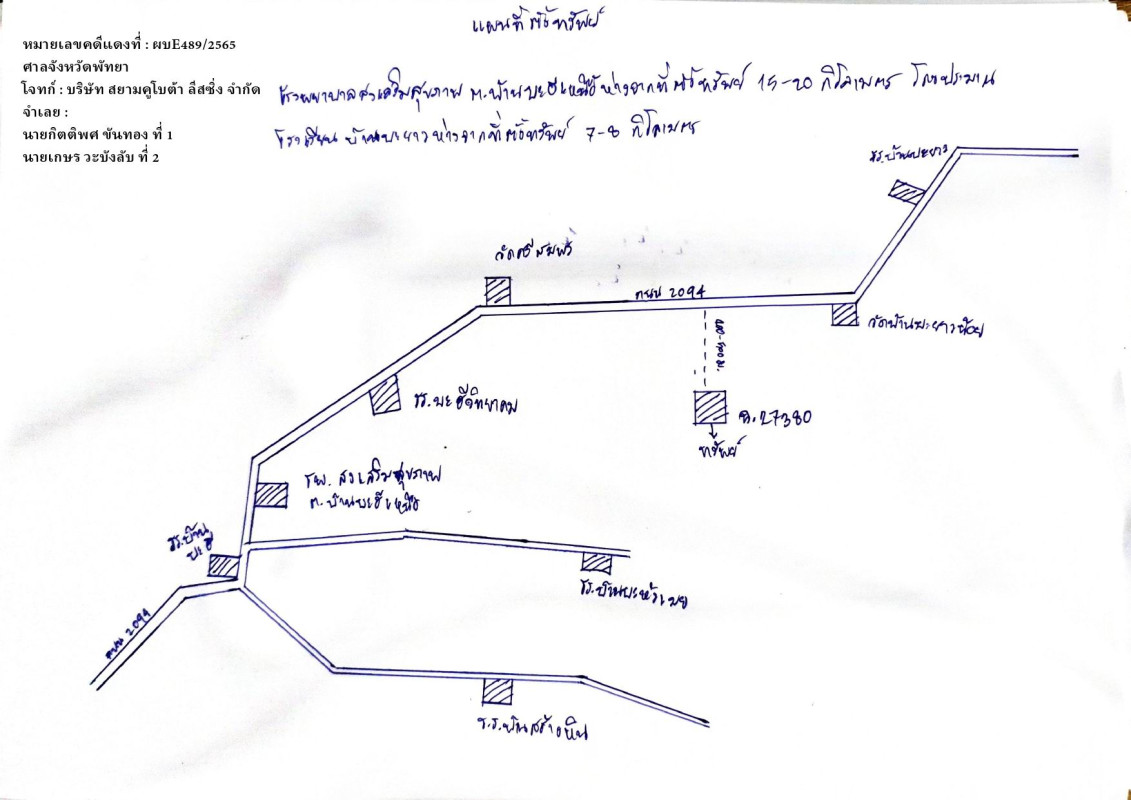 แผนที่ตั้งทรัพย์
หมายเลขคดีแดงที่ : ผบE489/2565
ศาลจังหวัดพัทยา
โจทก์ : บริษัท สยามคูโบต้า ลีสซิ่ง จำกัด
จำเลย :
นายกิตติพศ ขันทอง ที่ 1
นายเกษร วะบังลับ ที่ 2
โรงพยาบาลส่งเสริมสุขภาพ ต.บ้านมะฮีเหนือ ห่างจากที่ตั้งทรัพย์ 15-20 กิโลเมตร โดยประมาณ
โรงเรียน บ้านบะยาว ห่างจากที่ตั้งทรัพย์ 7-8 กิโลเมตร
รร.บ้านบะยาว
วัดศรีสมพร
ถนน 2094
วัดบ้านบะยาวน้อย
400-500 ม.
รร.บะฮีวิทยาคม
ฉ.27380
ทรัพย์
รพ. ส่งเสริมสุขภาพ
ต.บ้านบะฮีเหนือ
รร.บ้าน
บะฮี
รร.บ้านบะหัวเมย
ถนน 2094
ร.ร.บ้านสร้างหิน